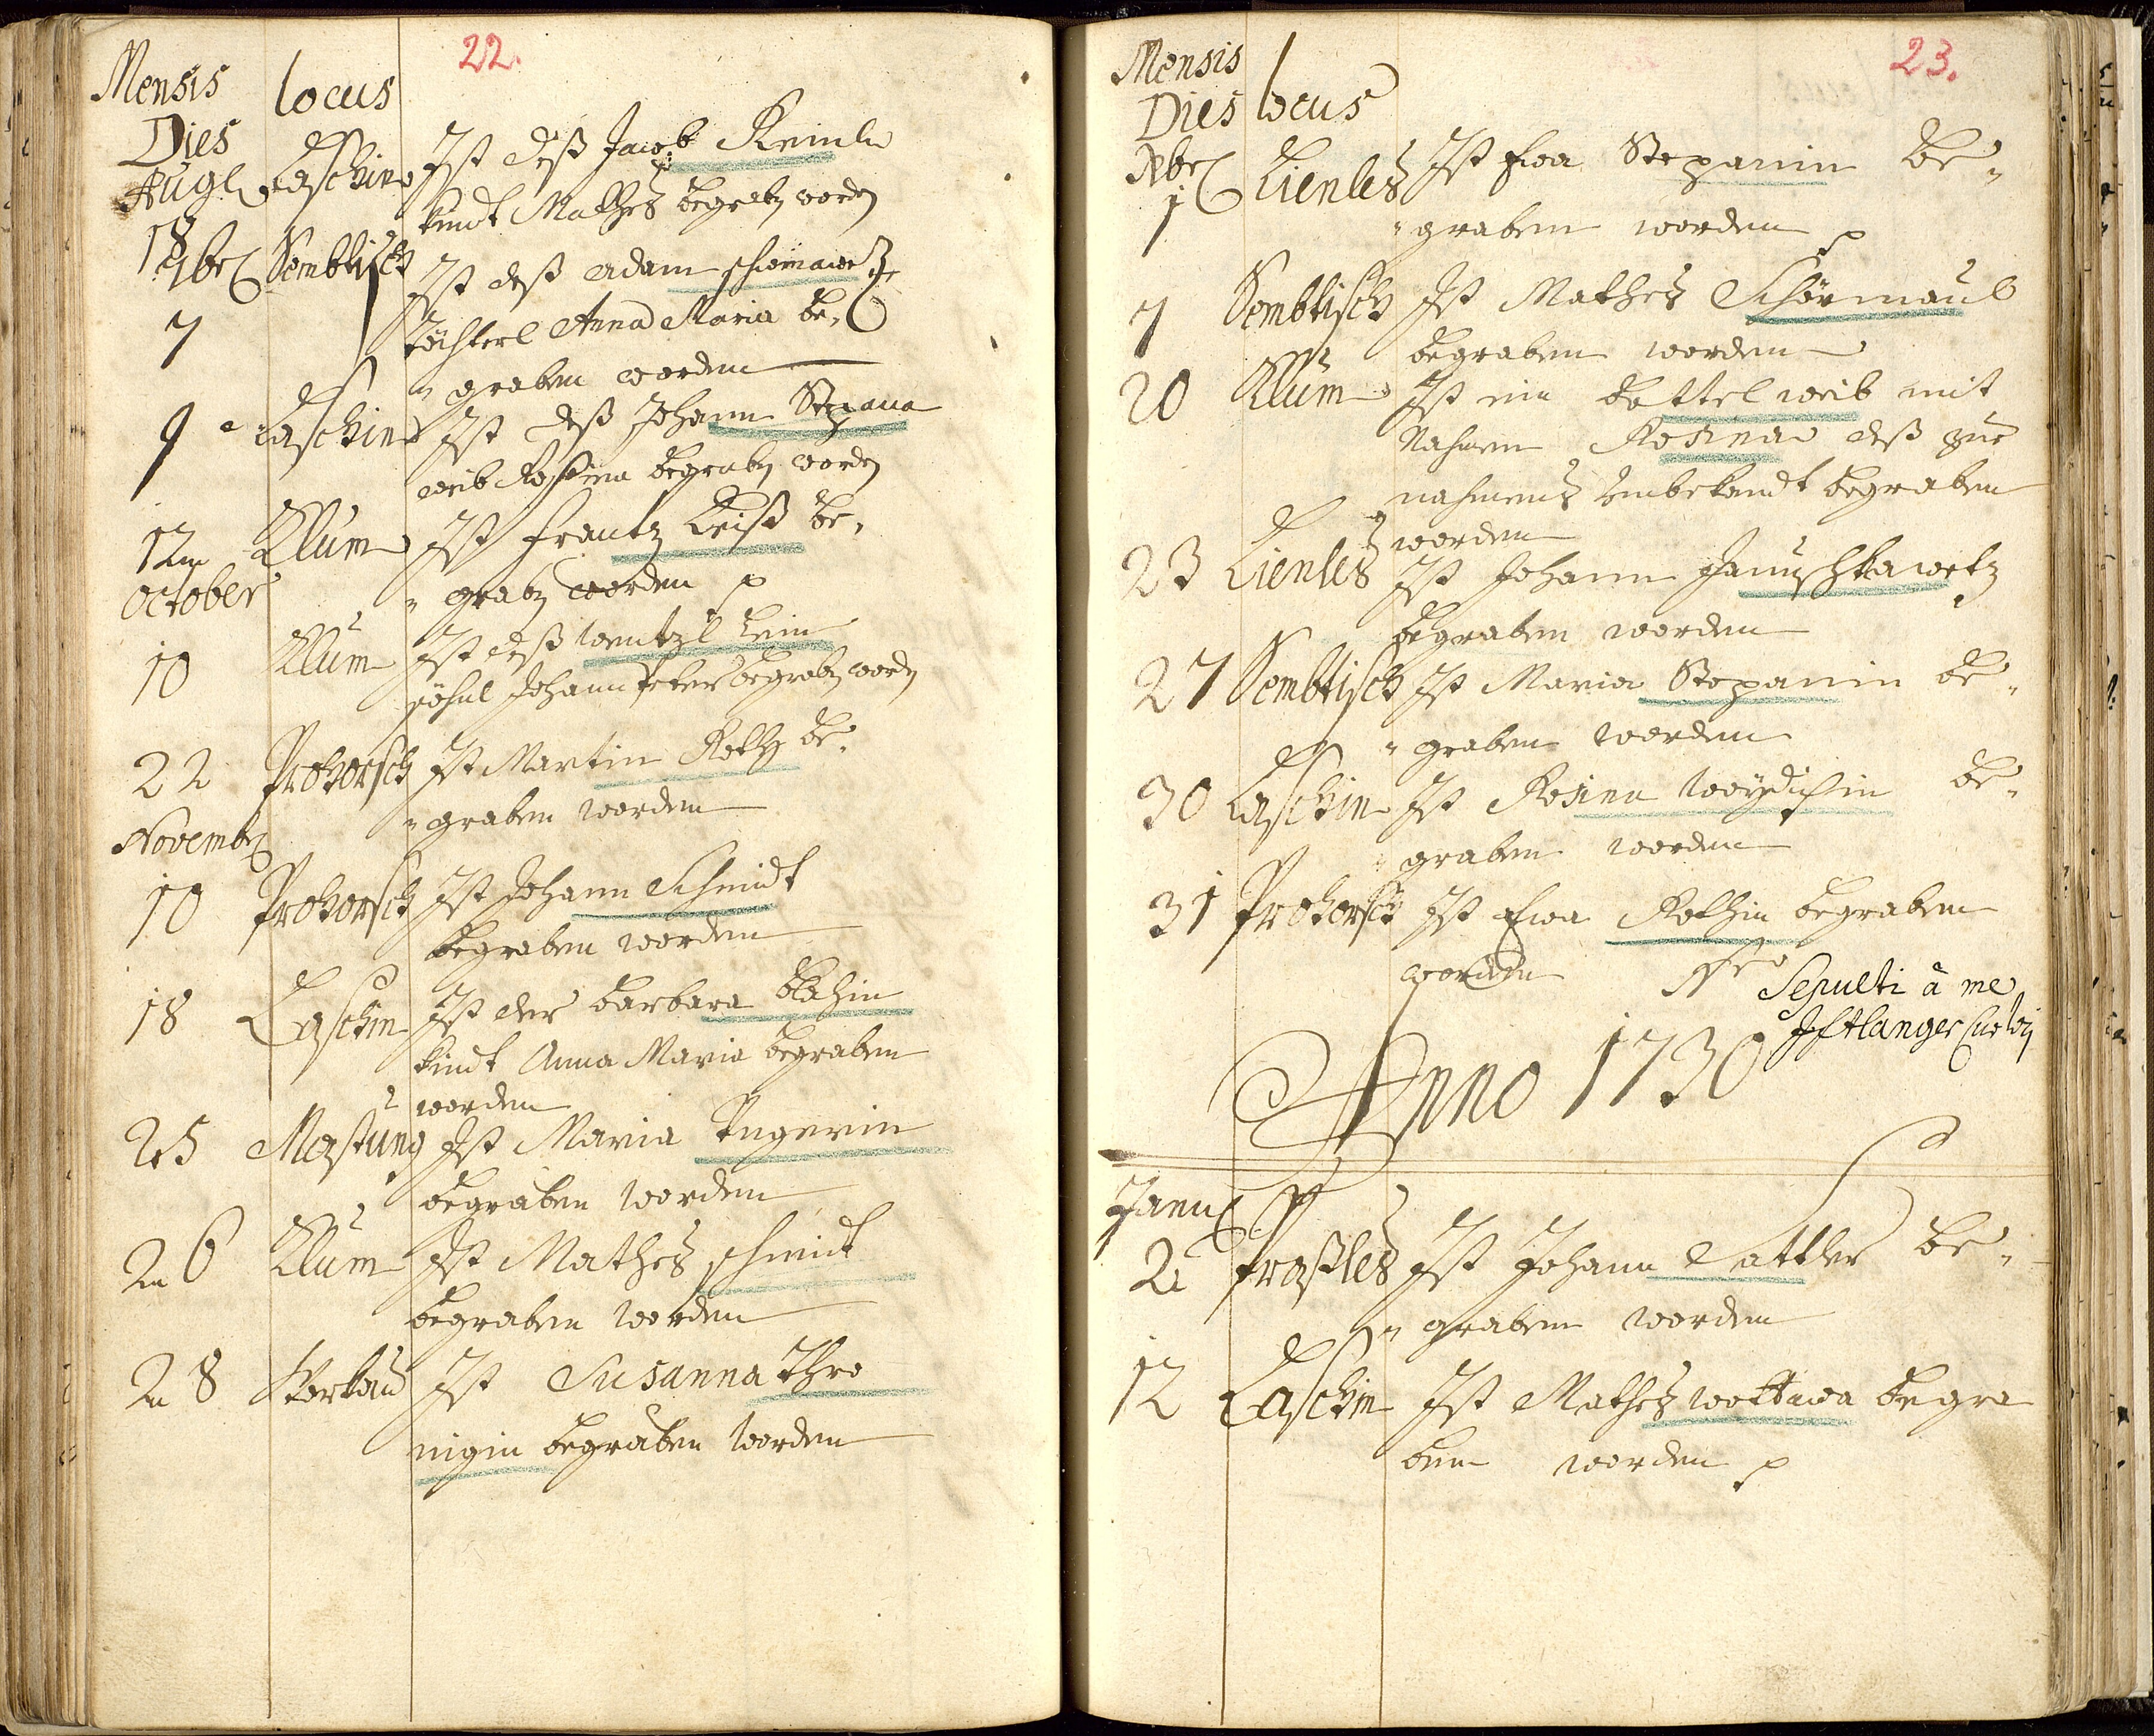 22.
Mensis
Dies locus
Augl Laschin Ist deß Jacob Reinln
18 kindt Mathes begrabn worden
7br Sembtisch Ist deß Adam
7 töchterl Anna Maria be„
„graben worden
9 Laschin Ist deß Johann Stepana
weib Rosina begrabn worden
12 Klum Ist Frantz Leiß be„
„grabn worden p
October
10 Klum Ist deß Wentzl Lein
söhnl Johann Peter begrabn worden
22 Prohorsch Ist Martin Roth be„
„graben worden
Novembr
10 Prohorsch Ist Johann Schmidt
begraben worden
18 Laschin Ist der Barbara Blahin
kindt Anna Maria begraben
worden
25 Mastung Ist Maria Ungerin
begraben worden
26 Klum Ist Mathes schmidt
begraben worden
28 Ist Susanna Thro
nigin begraben worden
23.
Mensis
Dies locus
Xbr
1 Lienles Ist Ewa Stepanin be„
„graben worden p
7 Sembtisch Ist Mathes Schörmaul
begraben worden
20 Klum Ist ein bettel weib mit
Nahmen Rosina deß zue
nahmens unbekandt begraben
worden
23 Lienles Ist Johann Januschkawetz
begraben worden
27 Sembtisch Ist Maria Stepanin be„
„graben worden
30 Laschin Ist Rosina be„
graben worden
31 Prohorsch Ist Ewa Rothin begraben
worden Sepulti à me
Anno 1730
Janu
2 Proßles Ist Johann Sattler be„
„graben worden
12 Laschin Ist Mathes wottawa begra
ben worden p